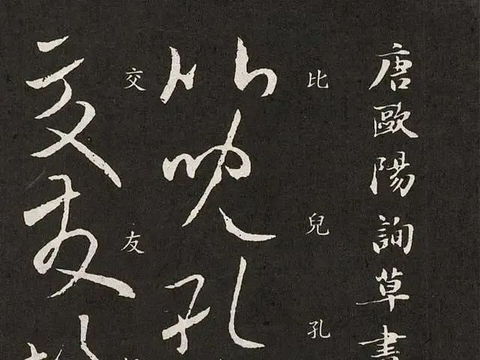 唐歐陽詢草書
比兒孔
比兒孔
交友
交友